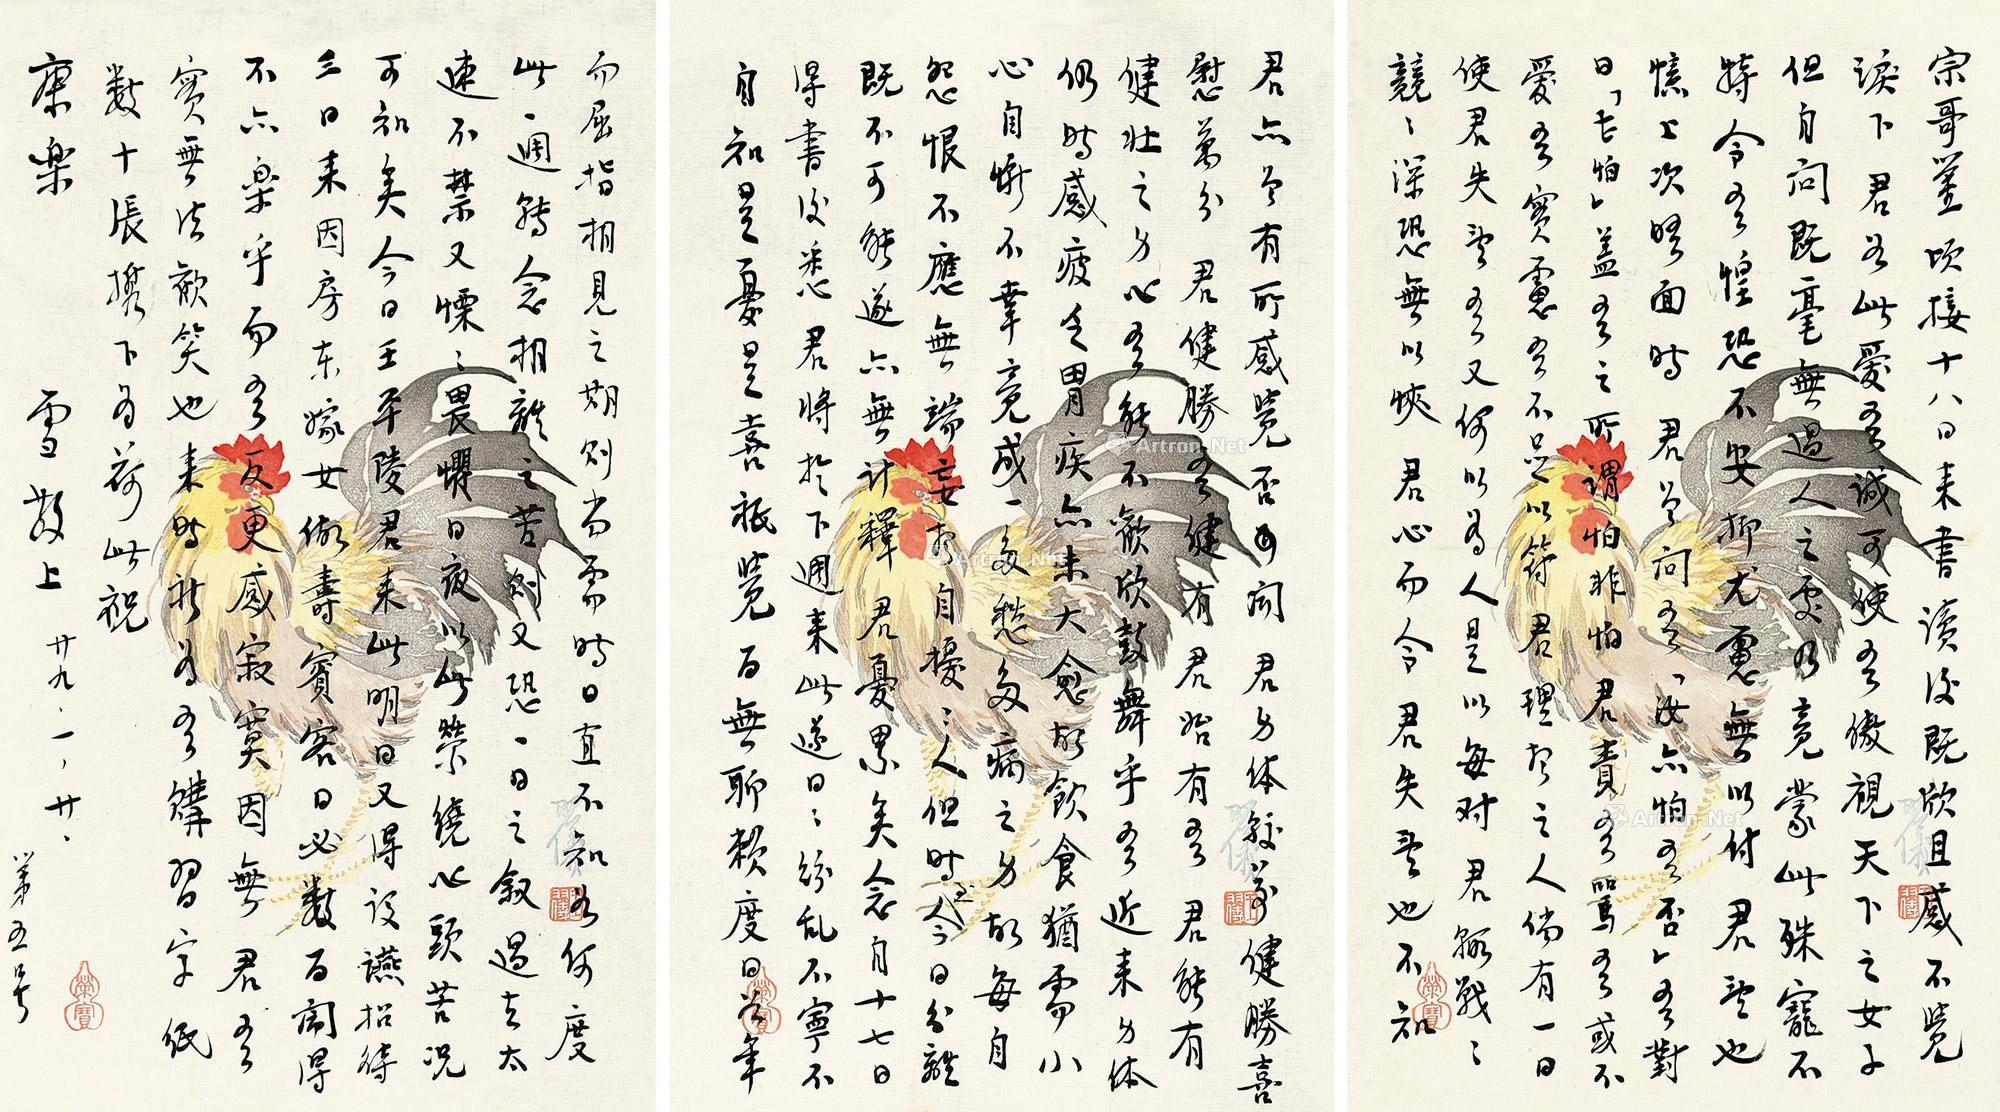 宗哥鉴顷接十八日来書讀後既欣且感不覺
淚下君如此愛吾誠可使吾傲視天下之女子
但自问既毫無過人之處乃竟蒙此殊寵不
特令吾惶恐不安抑尤慮無以付君望也
憶上次晤面時君曾问吾「汝亦怕吾否」吾對
曰「七怕」盖吾之所謂怕非怕君責吾罵吾或不
愛吾實慮吾不足以符君理想之人倘有一日
使君失望吾又何以為人是以每对君輒戰〻
競〻深恐無以快君心而令君失望也不知
君亦曾有所感覺否的闻君身体較前健勝喜
慰萬分君健勝吾健有君始有吾君能有
健壮之身心吾能不歡欣鼓舞乎吾近来身体
仍時感疲乏胃疾亦未大愈故飲食猶需小
心自慚不幸竟成一多愁多病之身故每自
怨恨不應無端妄想自擾〻人但時至今日分離
既不可能遂亦無计釋君憂累矣念自十七日
得書後悉君將於下週来此遂日〻紛乱不寧不
自知是憂是喜祇覺百無聊賴度日若年
而屈指相見之期则尚需時日直不知如何度
此一週轉念相離之苦则又恐一日之敘過去太
速不禁又慄〻畏懼日夜以此縈繞心頭苦况
可知矣今日王平陵君来此明日又得设讌招待
三日来因房东嫁女做壽賓客日必数百闹得
不亦樂乎而吾反更感寂寞因無君吾
實無法歡笑也来時祈為吾購習字纸
数十張携下为荷此祝
康樂
雪敬上
廿九、一、廿、
第五号
榮寶
Artron.Net